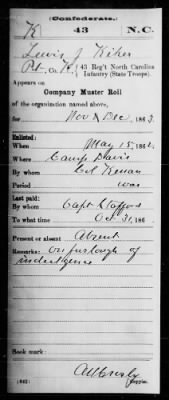 (Confederate.)
K 43 N.C.
Lewis J Kiker
Pvt, Co. K, 43 Reg't North Carolina
Infantry (State Troops).
Appears on
Company Muster Roll
of the organization named above,
for Nov & Dec, 1863.
Enlisted:
When May 15, 1862.
Where Camp Davis
By whom Col Kenan
Period war
Last paid:
By whom Capt Stafford
To what time Oct 31, 186
Present or absent Absent
Remarks: on furlough of
indulgence
Book mark:
(642)
Copyist.